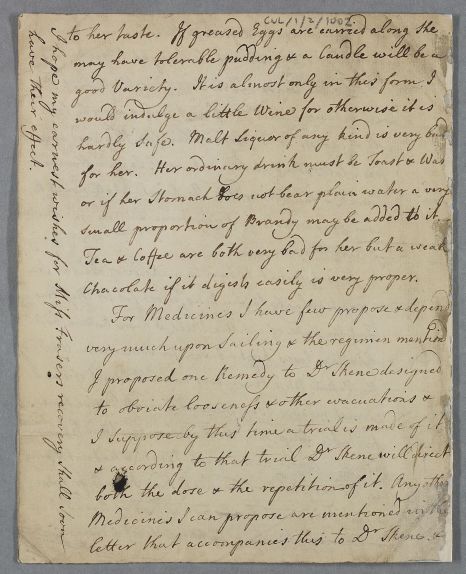 CUL/1/2/1002
to her taste. If greased Eggs are carried along She
may have tolerable pudding & a Caudle will be a
good Variety. It is almost only in this form I
would indulge a little Wine for otherwise it is
hardly Safe. Malt Liquor of any kind is very bad
for her. Her ordinary drink must be Toast & Wa
or if her Stomach does not bear plain water a very
small proportion of Brandy may be added to it
Tea & Coffee are both very bad for her but a weak
Chocolate if it digests easily is very proper.
For Medicines I have few propose & depend
very much upon Sailing & the regimen mention
I proposed one Remedy to Dr Skene designed
to obviate looseness & other evacuations &
I Suppose by this time a trial is made of it
& according to that trial Dr Skene will direct
both the dose & the repetition of it. Any other
Medicines I can propose are mentioned in the
letter that accompanies this to Dr Skene. &
I hope my earnest wishes for Miss Frasers recovery Shall Soon
have their effect.